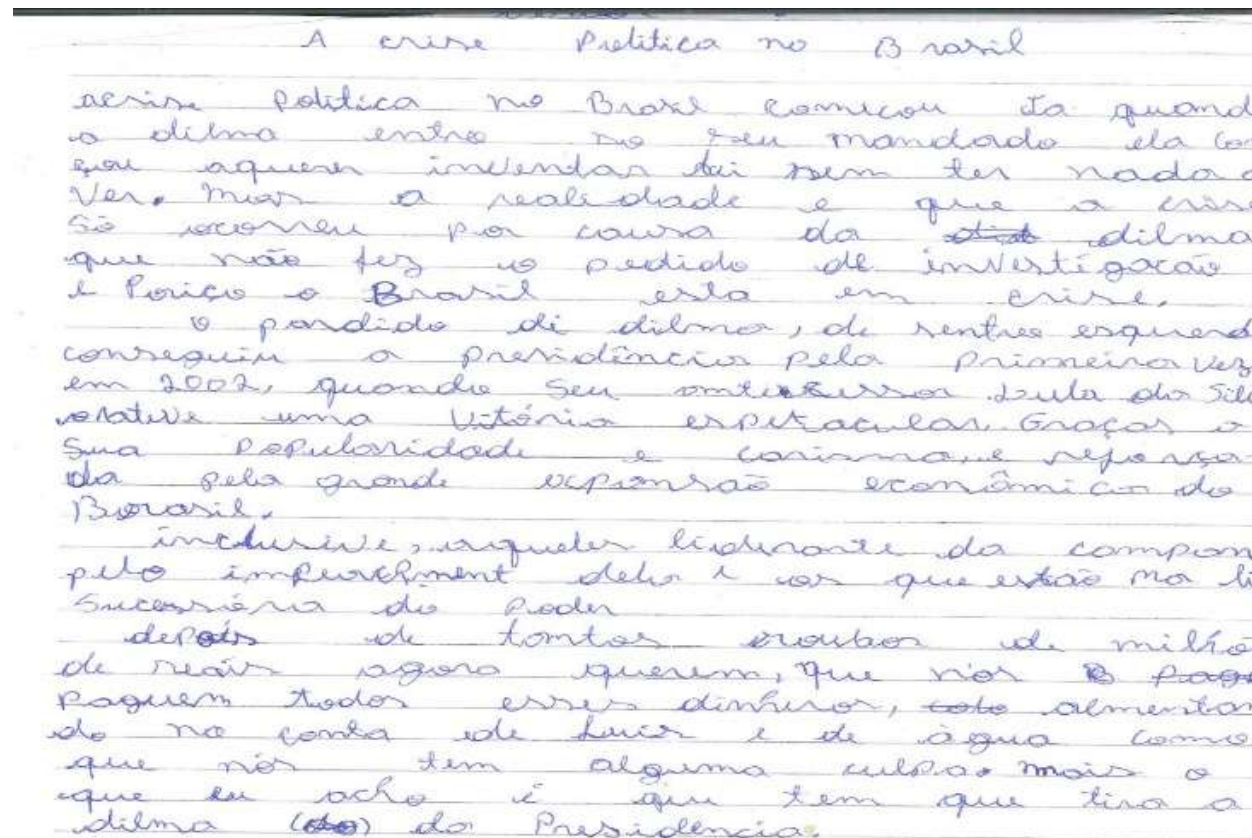 A crise Política no Brasil
acrise Política no Brasil comicou Ja quand
o dilma entro no seu mandado ela Co
çou aquerer inventar lei sem ter nada a
Ver. mias a realidade e que a cris
Só ocorreu por causa da dilma
que não fez o pedido de investigacão
e Poriço o Brasil esta em crise.
o pardido di dilma, de sentro esquerd
conseguiu a presidência pela Primeira Vez
em 2002, quando Seu antesessor Lula da Sil
uma Vitória espetacular. Graças a
Sua Popularidade e carisma, e reforça
da pela grande expansão econômica do
Borasil.
inclusive, aqueles liderante da campan
pelo impeachment dela e os que estão na li
Sucessória do Poder
depois de tantos roubos de milhõ
de reais agora querem, que nós
paguem todos esses dinheros, almentan
do na conta de luis e de àgua como
que nós tem alguma culpa. mais o
que eu acho é que tem que tira a
dilma da Presidência.